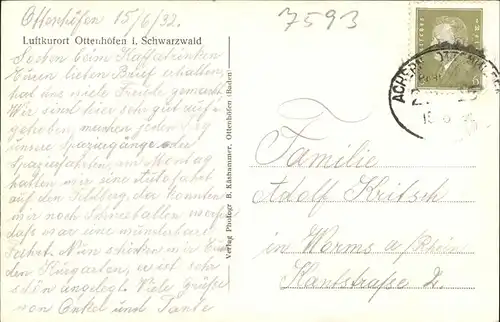 Ottenhöfen 15/6/32.
7593
Luftkurort Ottenhöfen i. Schwarzwald
Soeben beim Kaffetrinken
Euren lieben Brief erhalten,
hat uns viele Freude gemacht.
Wir sind hier sehr gut auf
gehoben, machen jeden Tag
unsere Spaziergänge oder
Spazierfahrten, am Montag
hatten wir eine Autofahrt
auf den, da konnten
wir noch Schneeballen werfen
das war eine wunderbare
Fahrt. Nun schicken wir Euch
den Kurgarten, er ist sehr
schön angelegt. Viele Grüße
von Onkel und Tante
Verlag Photogr. B. Käshammer, Ottenhöfen (Baden)
ACHERN
Familie
Adolf Kritsch
in Worms a/Rhein
Kantstraße 2.